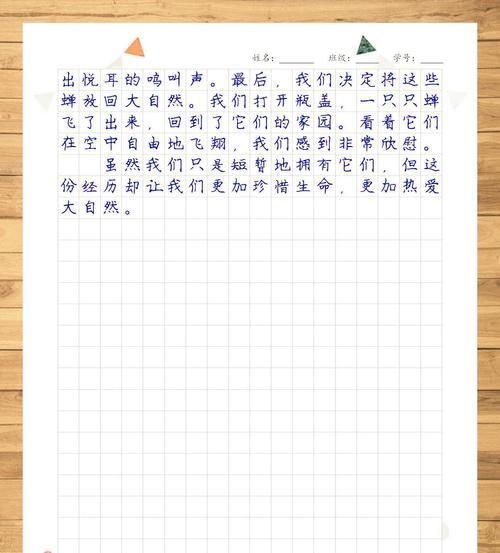 姓名：______ 班级：_____ 学号：____
出悦耳的鸣叫声。最后，我们决定将这些
蝉放回大自然。我们打开瓶盖，一只只蝉
飞了出来，回到了它们的家园。看着它们
在空中自由地飞翔，我们感到非常欣慰。
虽然我们只是短暂地拥有它们，但这
份经历却让我们更加珍惜生命，更加热爱
大自然。